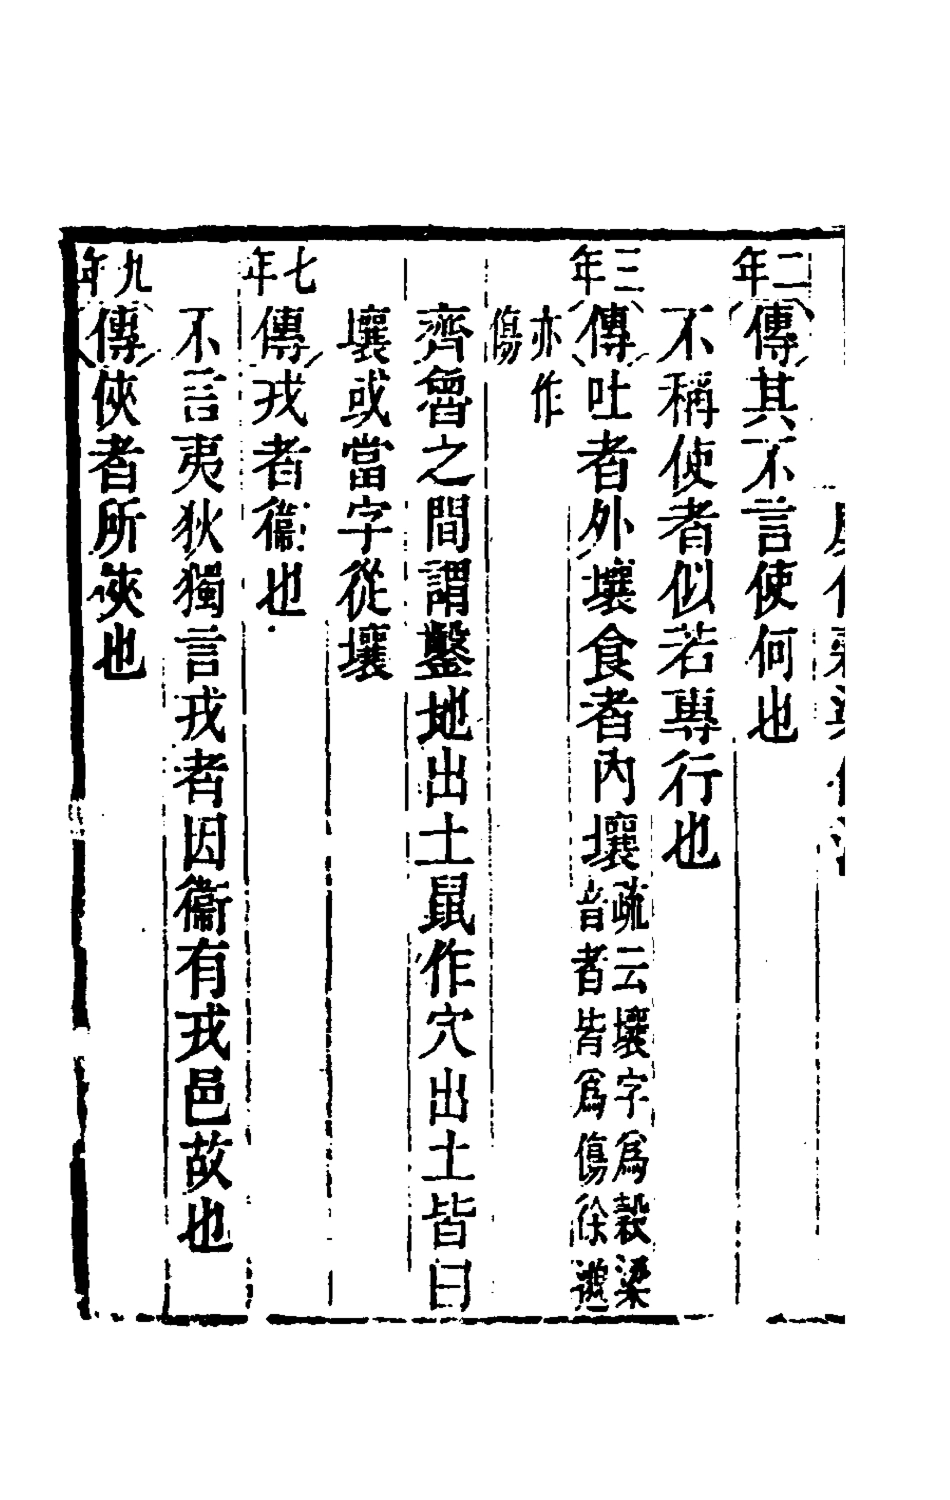 二年傳其不言使何也
不稱使者似若專行也
三年傳吐者外壤食者內壤疏云壤字爲穀梁
音者皆爲傷徐邈
亦作
傷
齊魯之間謂鑿地出土鼠作穴出土皆曰
壤或當字從壤
七年傳戎者衞也
不言夷狄獨言戎者因衞有戎邑故也
九年傳俠者所俠也